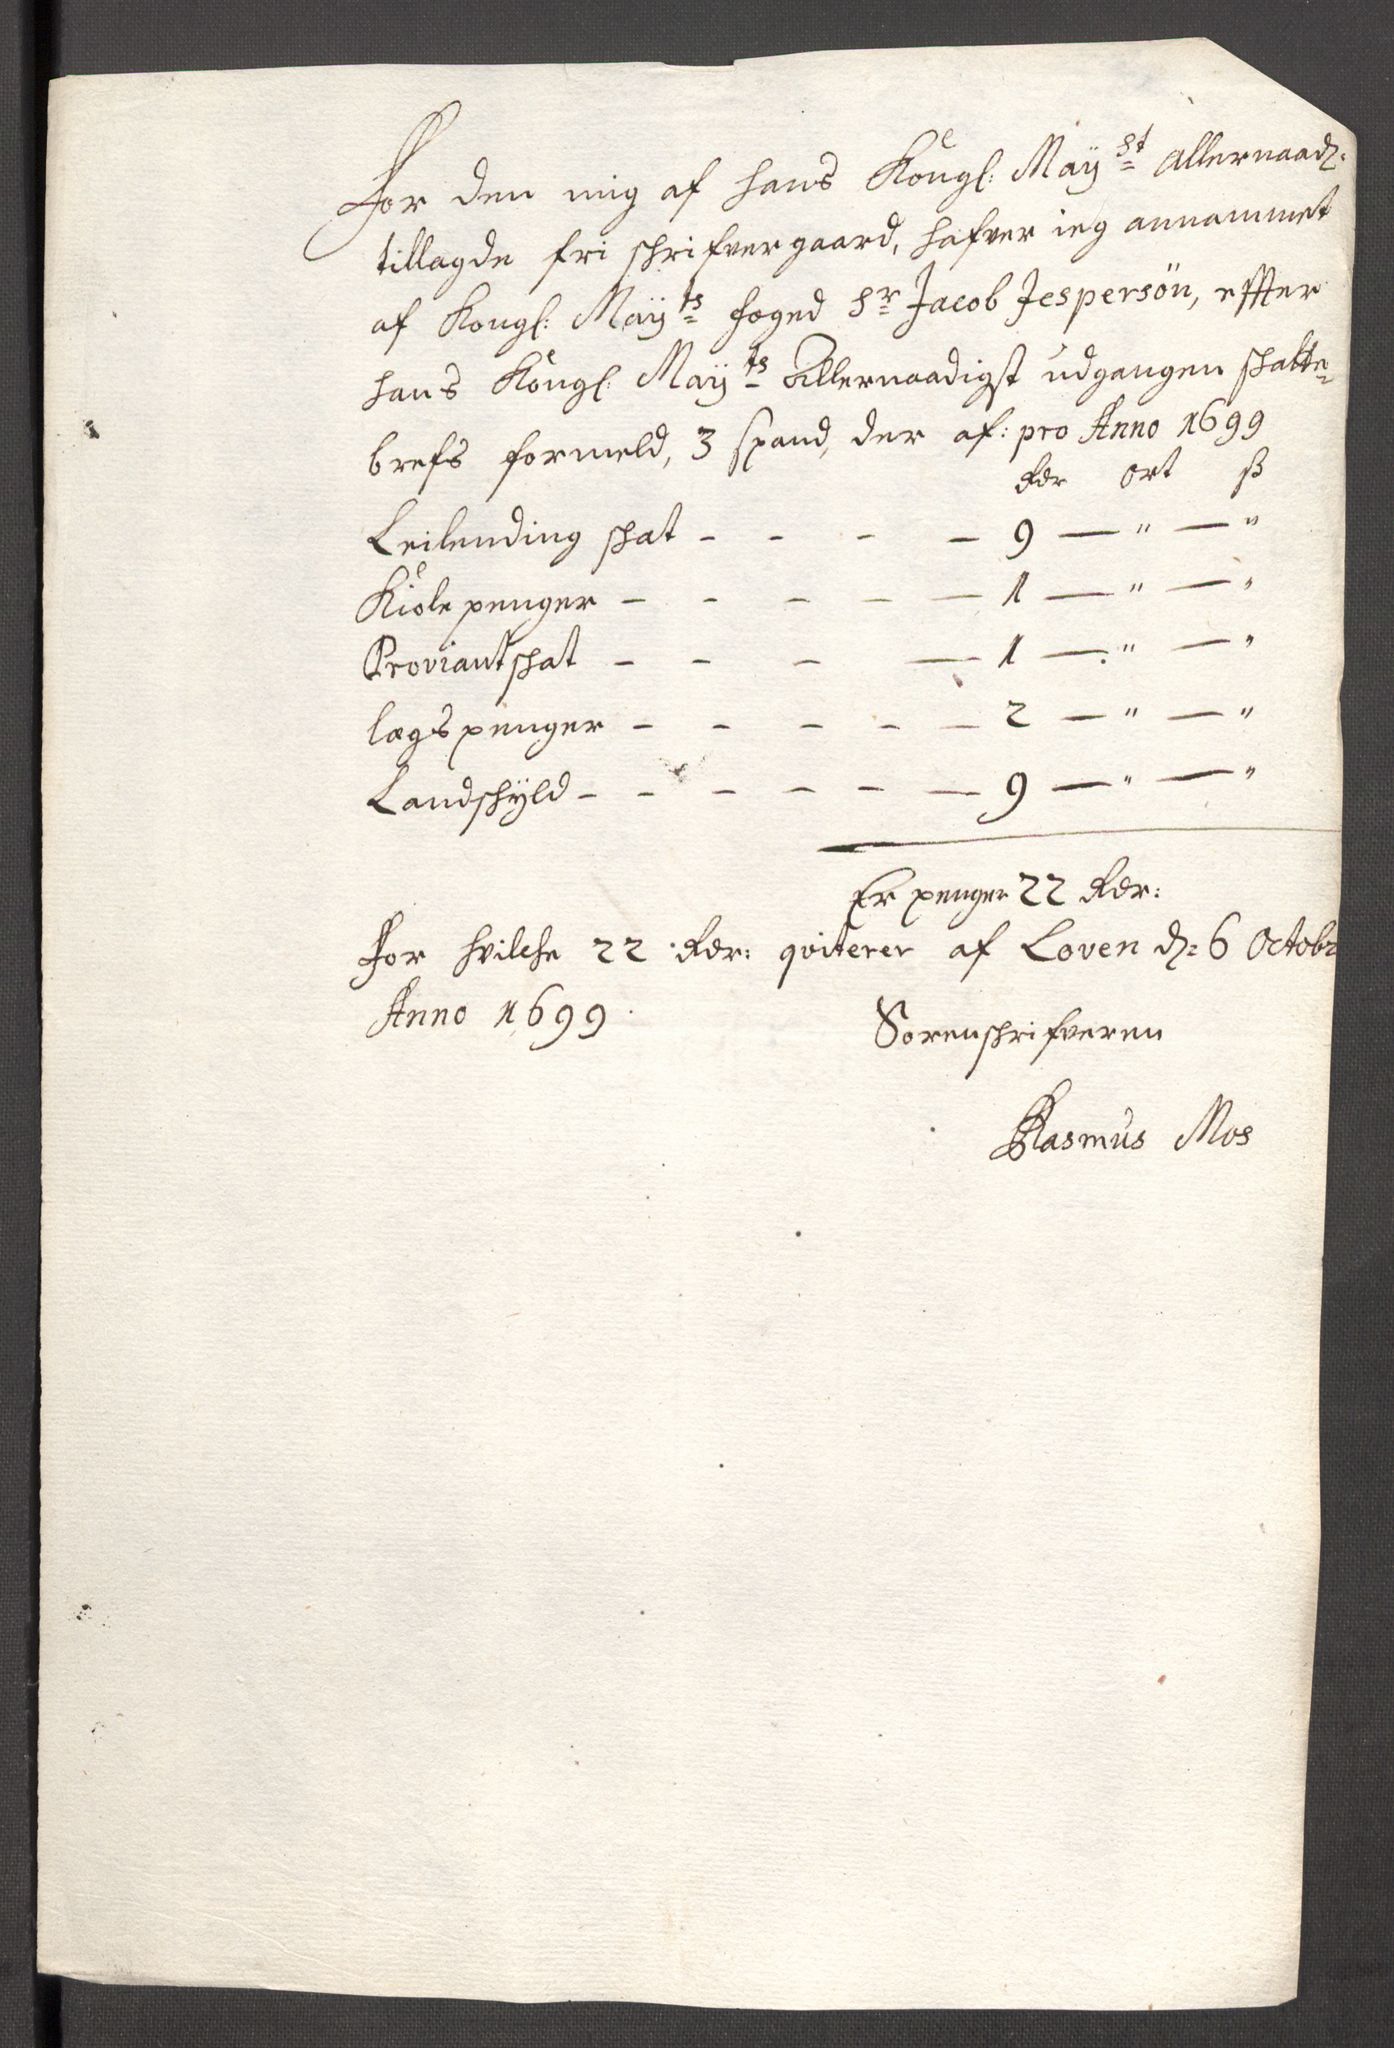 For den mig af hans Kongl: Maÿst allernaad:
tillagde fri schrifvergaard, hafver ieg annammet
af Kongl: Maÿts foged Hr Jacob Jespersön, effter
hans Kongl: Maÿts allernaadigst udgangen schatte-
brefs formeld, 3 spand, der af: pro Anno 1699
Rdr ort ß
Leilending schat - - - - 9 — " — "
Kiole penger - - - - - 1 — " — "
Proviantschat - - - - 1 — " — "
lægs penger - - - - - 2 — " — "
Landschÿld - - - - - - 9 — " — "
Er penger 22 Rdr:
For hvilche 22 Rdr: qviterer af Loven d: 6 Octobr
Anno 1699.
Sorenschrifveren
Rasmus Mos